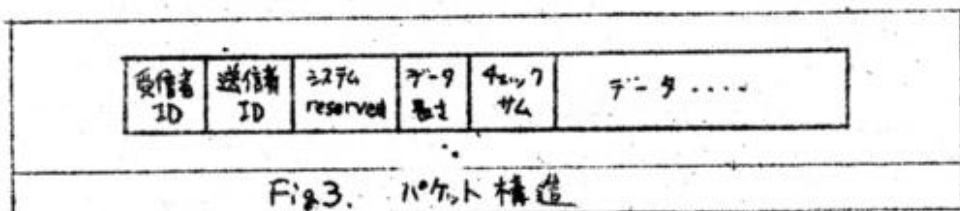 受信者 ID
送信者 ID
システム reserved
データ 長さ
チェック サム
データ ‥‥
Fig3. パケット構造